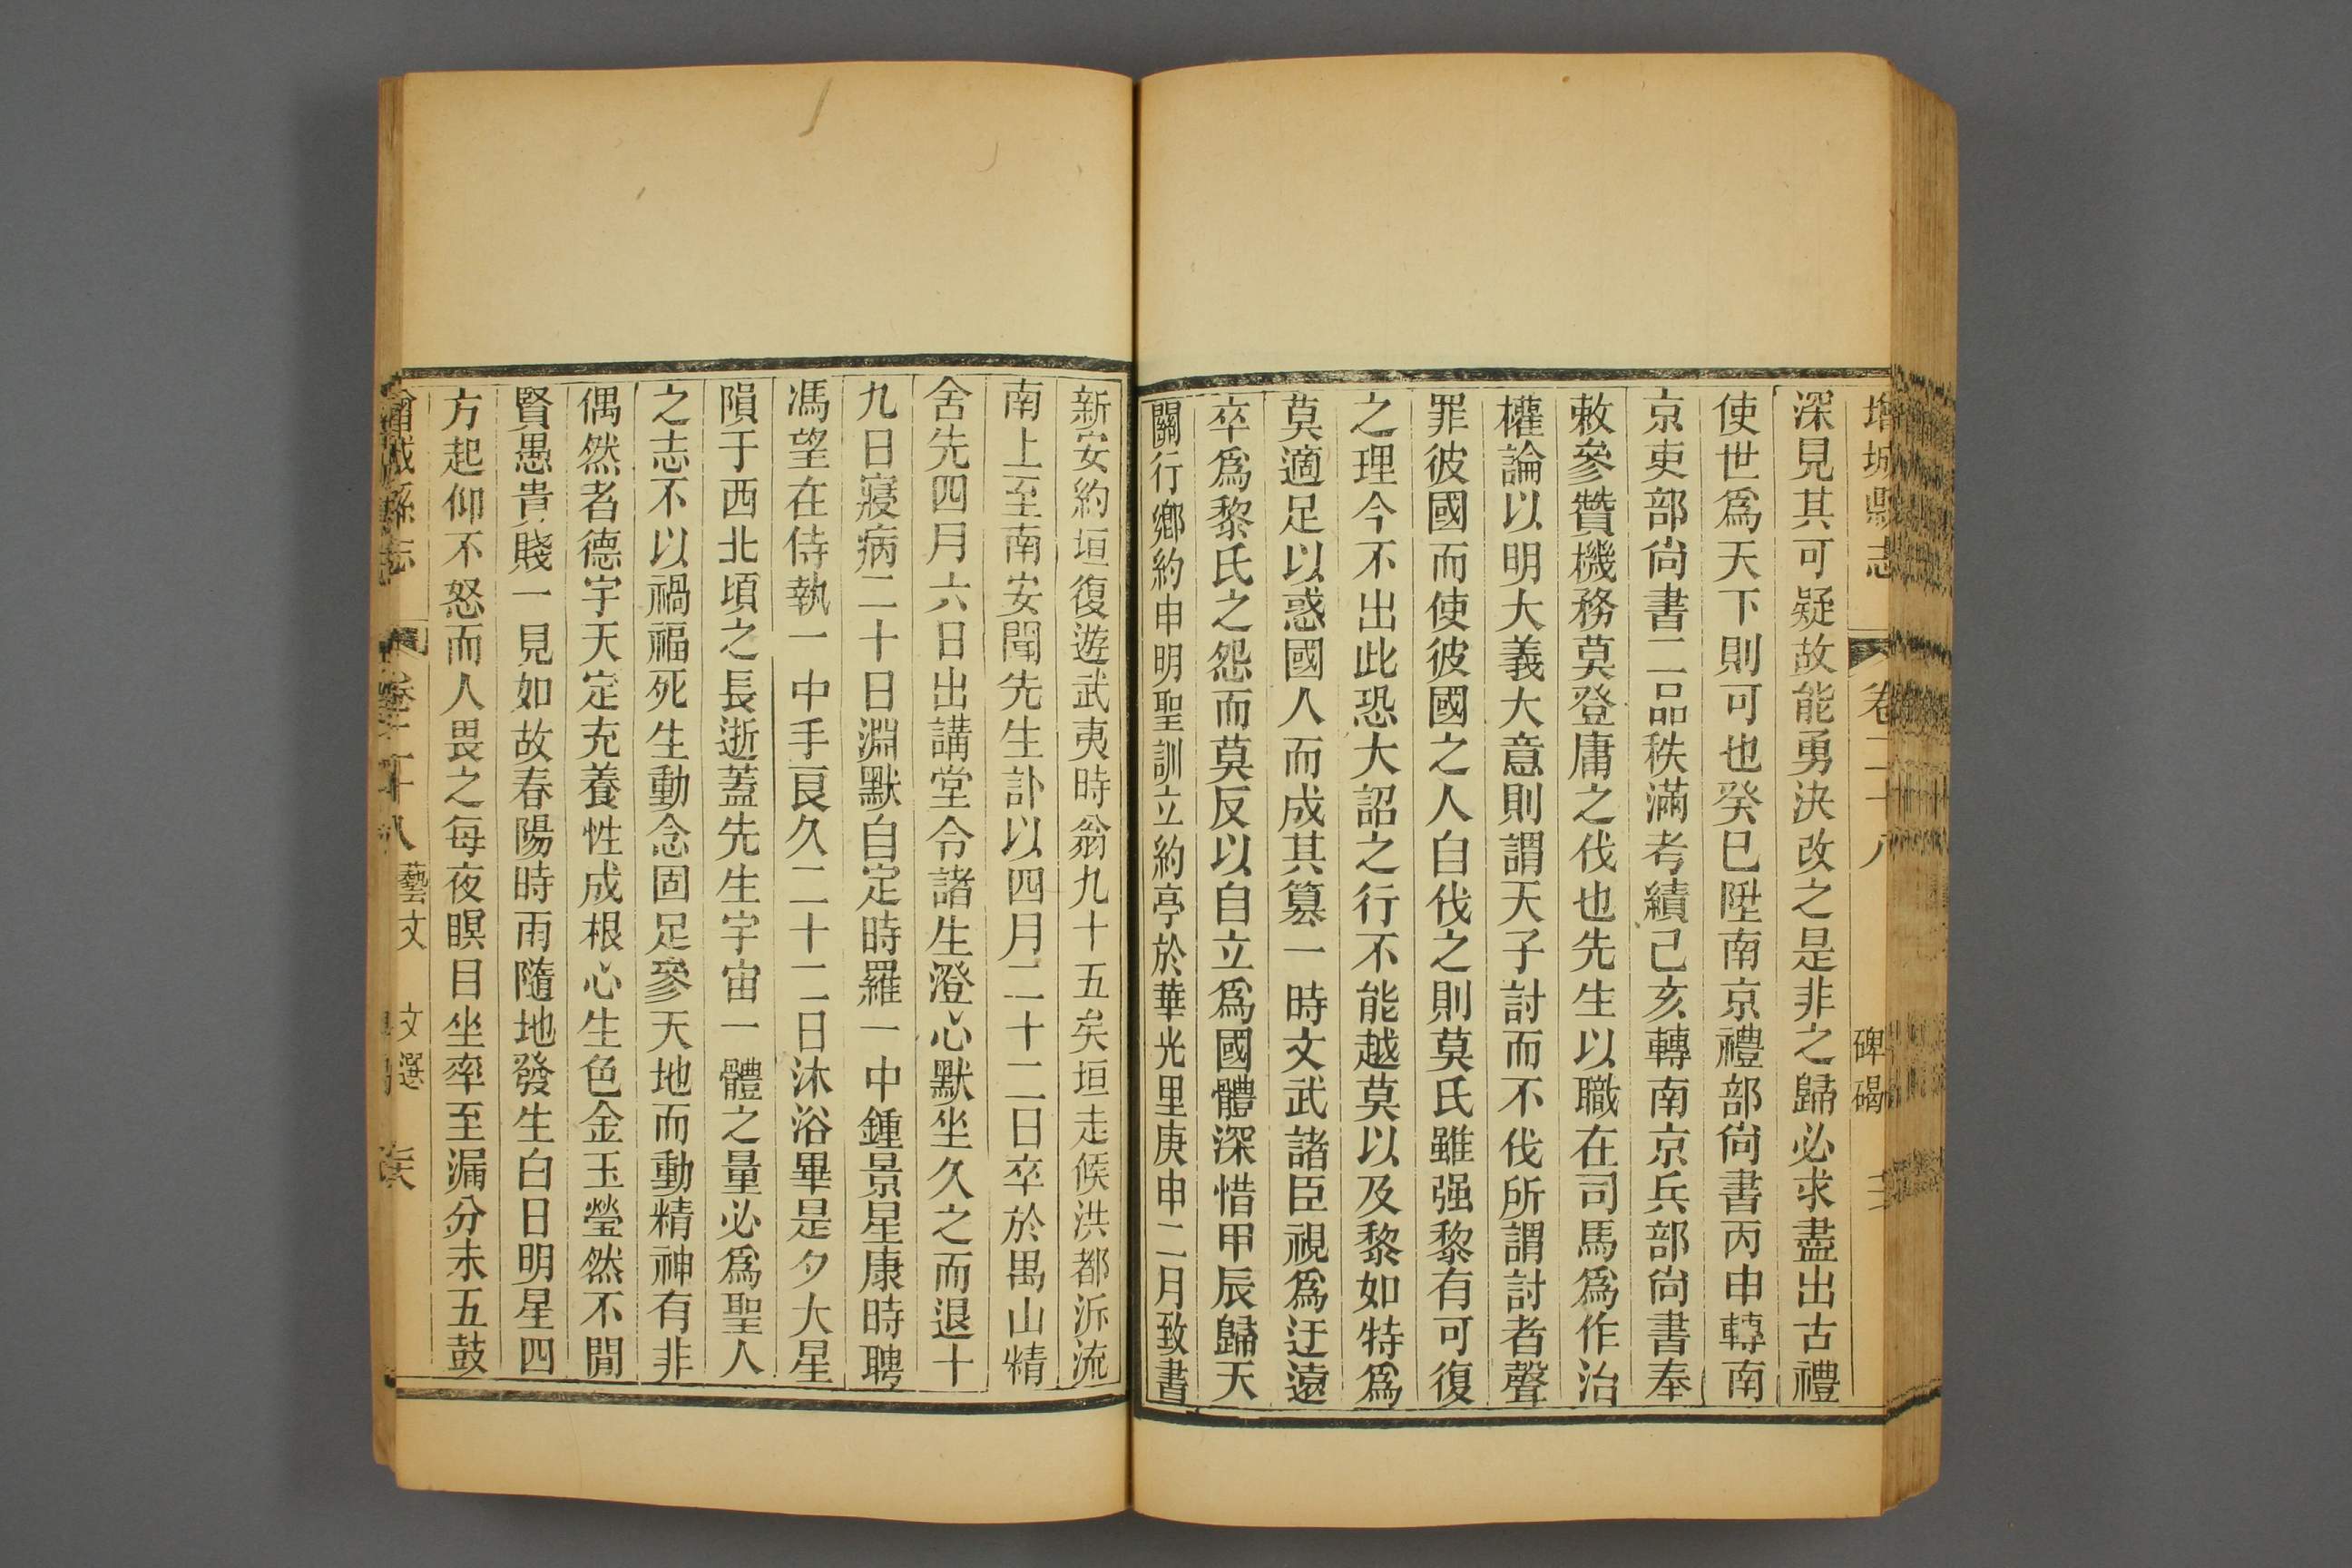 增城縣志 卷二十八 碑碣
深見其可疑故能勇決改之是非之歸必求盡出古禮
使世爲天下則可也癸巳陞南京禮部尙書丙申轉南
京吏部尙書二品秩滿考績己亥轉南京兵部尙書奉
敕參贊機務莫登庸之伐也先生以職在司馬爲作治
權論以明大義大意則謂天子討而不伐所謂討者聲
罪彼國而使彼國之人自伐之則莫氏雖强黎有可復
之理今不出此恐大詔之行不能越莫以及黎如特爲
莫適足以惑國人而成其篡一時文武諸臣視爲迂遠
卒爲黎氏之怨而莫反以自立爲國體深惜甲辰歸天
關行鄉約申明聖訓立約亭於華光里庚申二月致書
新安約垣復遊武夷時翁九十五矣垣走候洪都泝流
南上至南安聞先生訃以四月二十二日卒於禺山精
舍先四月六日出講堂令諸生澄心默坐久之而退十
九日寢病二十日淵默自定時羅一中鍾景星康時聘
馮望在侍執一中手良久二十二日沐浴畢是夕大星
隕于西北頃之長逝蓋先生宇宙一體之量必爲聖人
之志不以禍福死生動念固足參天地而動精神有非
偶然者德宇天定充養性成根心生色金玉瑩然不閒
賢愚貴賤一見如故春陽時雨隨地發生白日明星四
方起仰不怒而人畏之每夜瞑目坐率至漏分未五鼓
增城縣志 卷二十八 藝文 文選